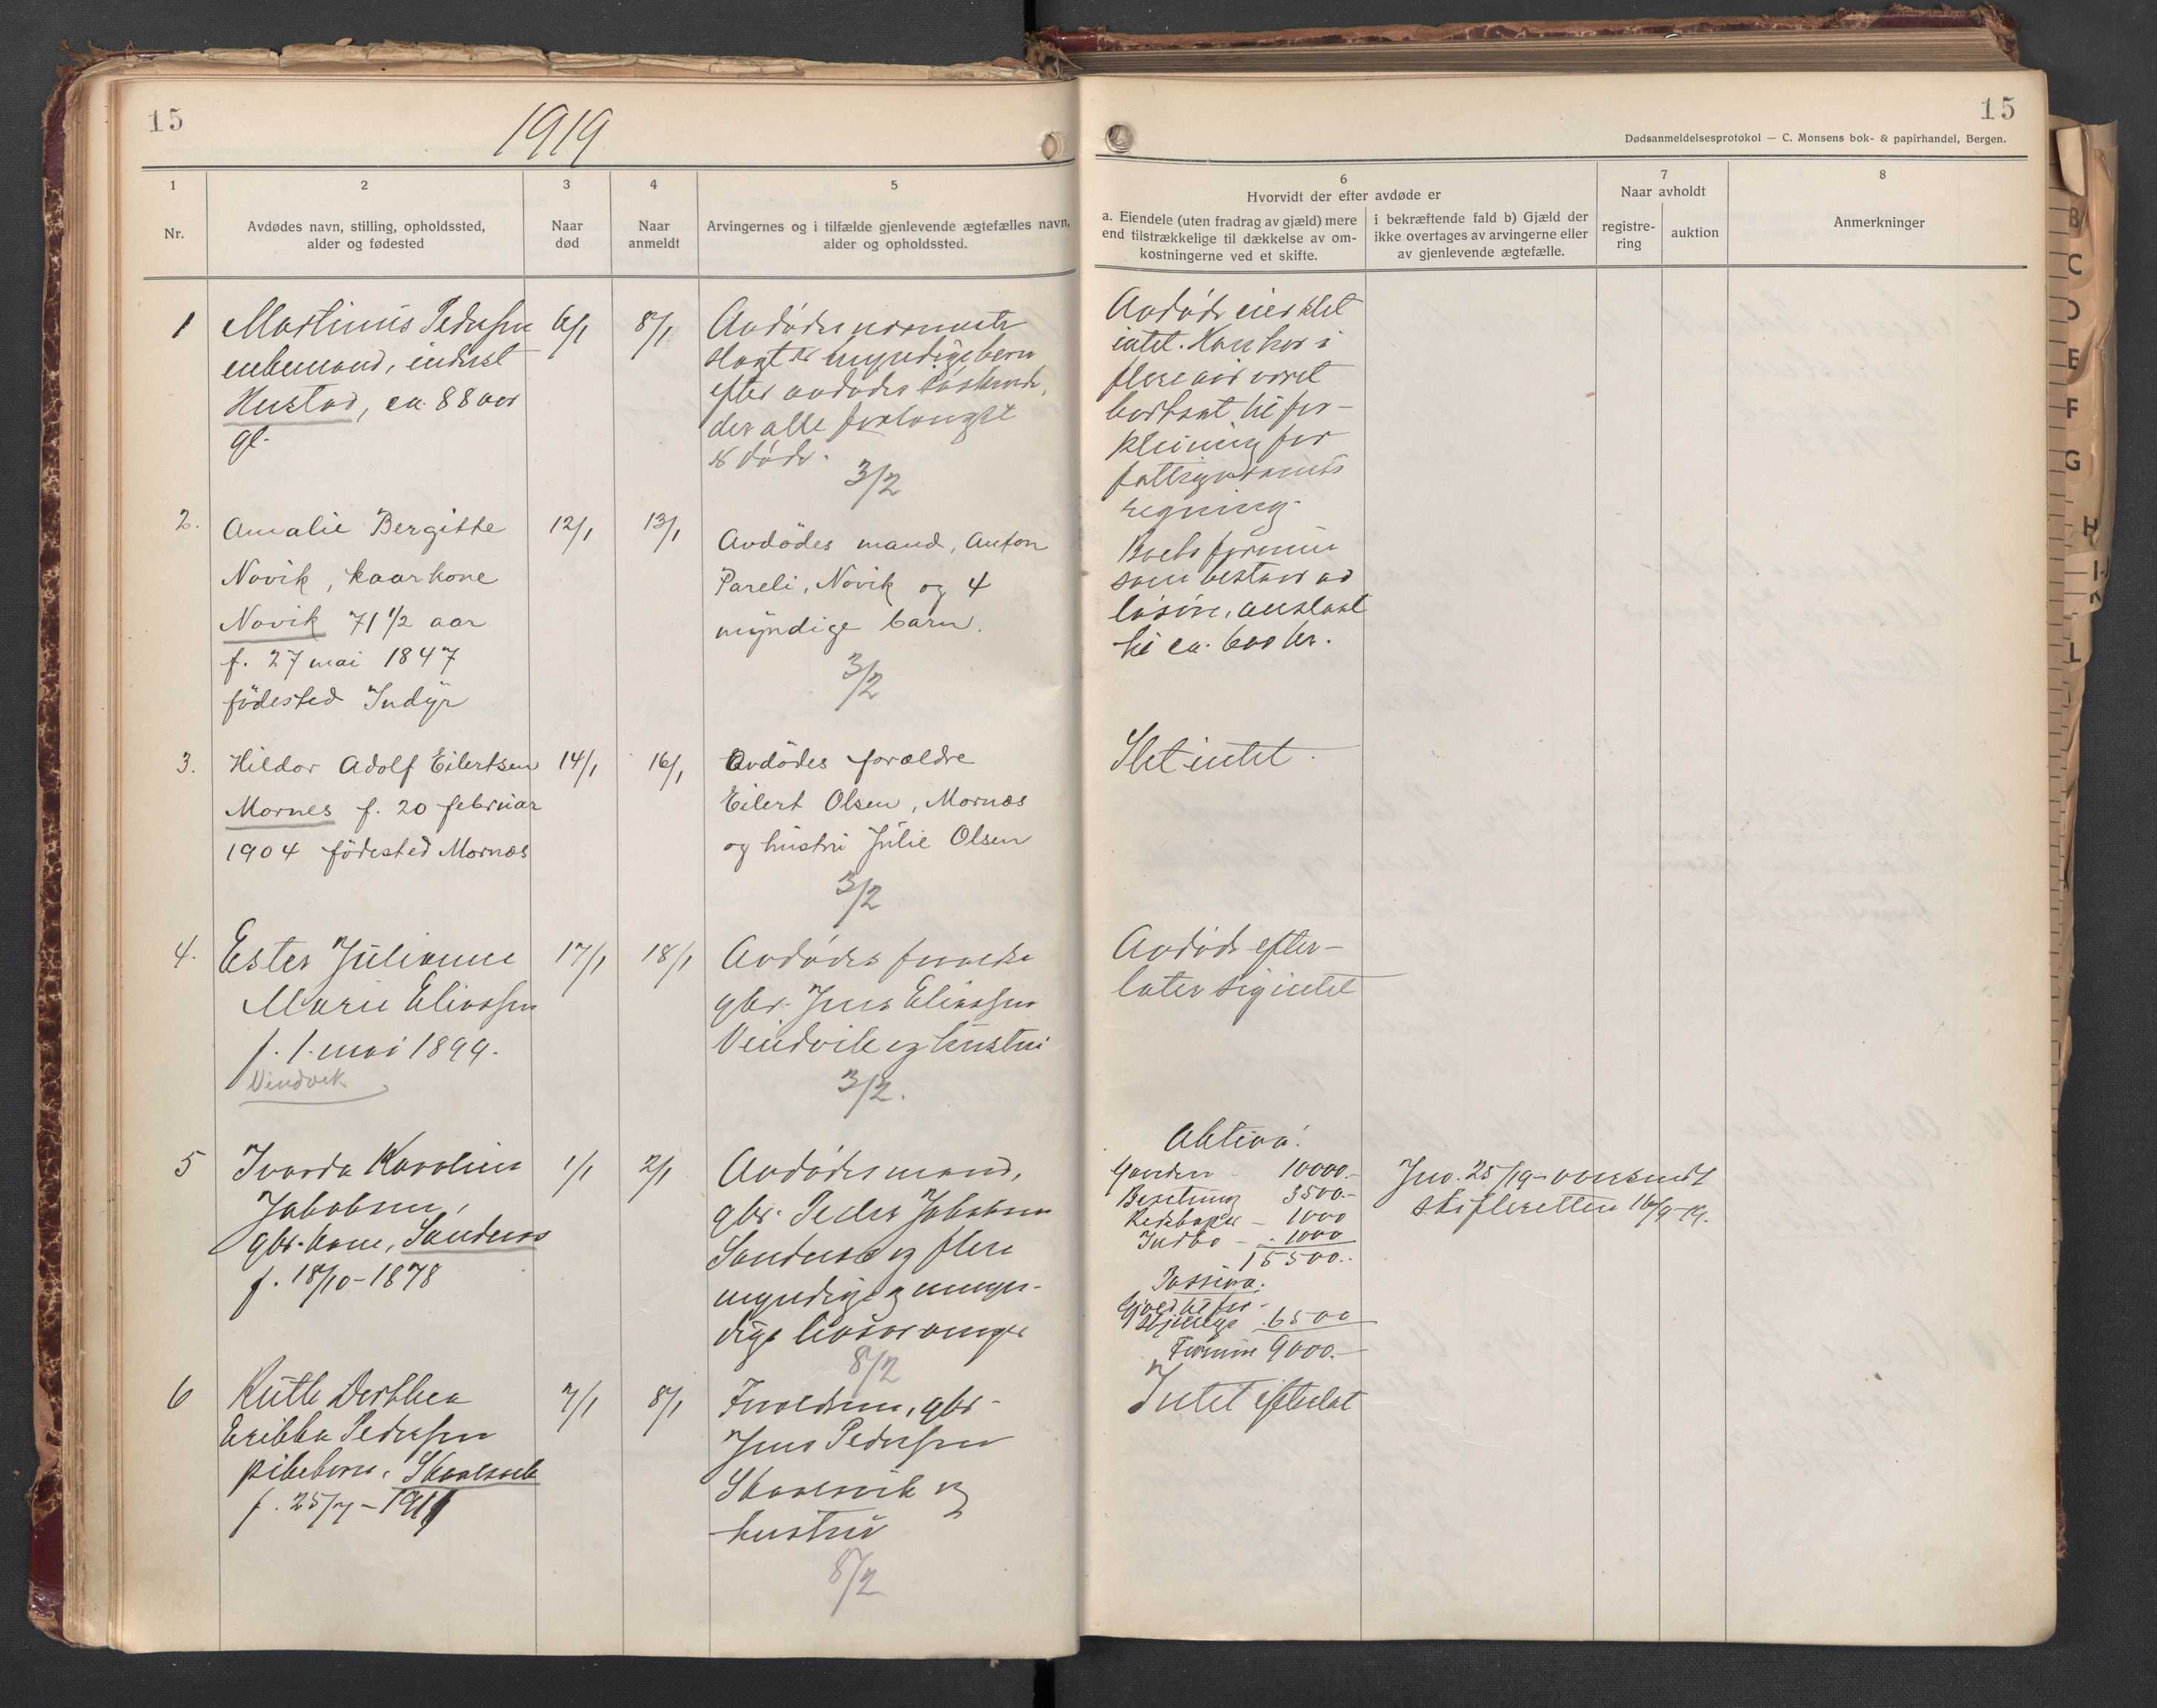 15
1919
1
2
3
4
5
Nr.
Avdødes navn, stilling, opholdssted,
alder og fødested
Naar
død
Naar
anmeldt
Arvingernes og i tilfælde gjenlevende ægtefælles navn,
alder og opholdssted.
1
Martinus Pedersen
enkemand, inderst
Hustad, ca. 88 aar
gl.
6/1
8/1
Avdødes nærmeste
slegt er myndige barn
efter avdødes søskende,
der alle forlængst
er døde.
3/2
2.
Amalie Bergitte
Novik, kaarkone
Novik 71 1/2 aar
f. 27 mai 1847
födested Indyr
12/1
13/1
Avdödes mand, Anton
Pareli, Novik og 4
myndige barn.
3/2
3.
Hildor Adolf Eilertsen
Mornes f. 20 februar
1904 födested Mornæs
14/1
16/1
Avdödes forældre
Eilert Olsen, Mornæs
og hustru Julie Olsen
3/2
4.
Ester Julianne
Marie Eliassen
f. 1. mai 1899.
Vindvik
17/1
18/1
Avdødes forældre
gbr. Jens Eliassen
Vindvik og hustru
3/2.
5
Ivarda Karoline
Jakobsen,
gbr. kone, Sandnes
f. 18/10-1878
1/1
2/1
Avdødes mand,
gbr. Peder Jakobsen
Sandnes og flere
myndige og umyn-
dige livsarvinger
8/2
6
Ruth Dorthea
Erikka Pedersen
pikebarn, Skaalsvik
f. 25/7-1911
7/1
8/1
Forældrene, gbr.
Jens Pedersen
Skaalsvik og
hustru
8/2
15
Dødsanmeldelsesprotokol — C. Monsens bok- & papirhandel, Bergen.
6
Hvorvidt der efter avdøde er
a. Eiendele (uten fradrag av gjæld) mere
end tilstrækkelige til dækkelse av om-
kostningerne ved et skifte.
i bekræftende fald b) Gjæld der
ikke overtages av arvingerne eller
av gjenlevende ægtefælle.
7
Naar avholdt
registre-
ring
auktion
8
Anmerkninger
Avdøde eier slet
intet. Han har i
flere aar været
bortsat til for-
pleining for
fattigvæsenets
regning.
Boets formue
som bestaar av
løsøre, anslaat
til ca. 600 kr.
Slet intet.
Avdøde efter-
later sig intet
Aktiva:
Gaarden 10000.-
Besetning 3500.-
Redskaper - 1000
Indbo - 1000
15500.-
Passiva.
Gjæld til for-
skjellige 6500
Formue 9000.-
Jnv. 25/19 - oversendt
skifteretten 16/9-19.
Intet efterlat
B
C
D
E
F
G
H
I
K
L